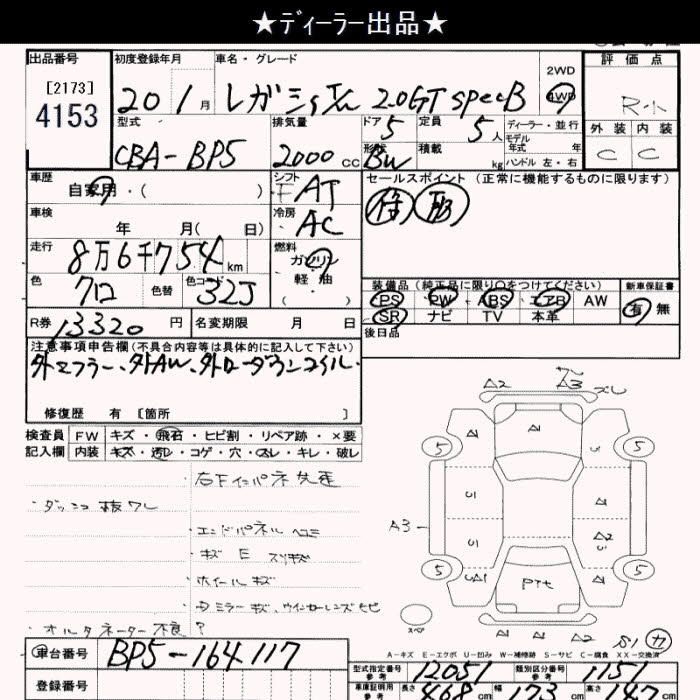 ★ディーラー出品★
出品番号
[2173]
4153
初度登録年月
20 1月
車名・グレード
2.0GT specB
2WD
4WD
評価点
外装 内装
C C
型式
CBA-BP5
排気量
2000cc
ドア 5
形状 BW
定員 5人
積載 kg
ディーラー・並行
モデル年式 年
ハンドル 左・右
車歴
自家用・( )
シフト
F AT
セールスポイント(正常に機能するものに限ります)
車検
年 月( 日)
冷房
AC
走行
8万6千754km
燃料
ガソリン
軽油
( )
色
クロ
色替
色コード
32J
装備品(純正品に限り○をつけてください)
PS PW ABS エアB AW
SR ナビ TV 本革
新車保証書
有 無
R券 13320円
名変期限 月 日
後日品
注意事項申告欄(不具合内容等は具体的に記入して下さい)
外マフラー、外AW、外ローダウンコイル
修復歴 有 [箇所 ]
検査員 FW キズ・飛石・ヒビ割・リペア跡・×要
記入欄 内装 キズ・汚レ・コゲ・穴・スレ・キレ・破レ
・エンドパネル ヘコミ
・キズ E スリキズ
・ホイールキズ
・オルタネーター不良?
A2 A3
A1 A1
5 5
U1 U1
A1
A3
U1 A2
5 5
UA1 A1
Pte
スペア
A1 A1 A1 A2
A-キズ E-エクボ U-凹み W-補修跡 S-サビ C-腐食 XX-交換済
車台番号 BP5-164117
登録番号
型式指定番号 参考 12051
類別区分番号 参考 1151
車庫証明用 参考 長さ 468cm 幅 173cm 高さ 147cm